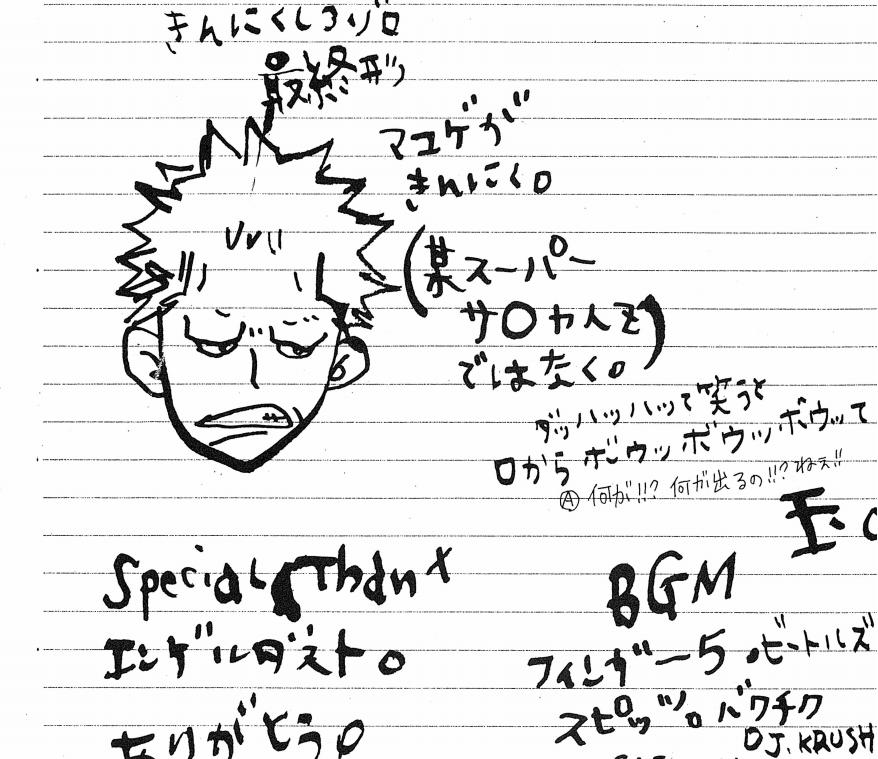 きんにくしろゾロ
最終形
マユゲが
きんにく。
(某スーパー
サ〇ヤ人2)
ではなく。
ダッハッハッて笑うと
口からボウッボウッボウッて
Ⓐ何が!!? 何が出るの!!?ねぇ!!
Special Thanx
エンゲルダスト。
ありがとう。
BGM
フィンガー5.ビートルズ
スピッツ。バクチク
DJ.KRUSH